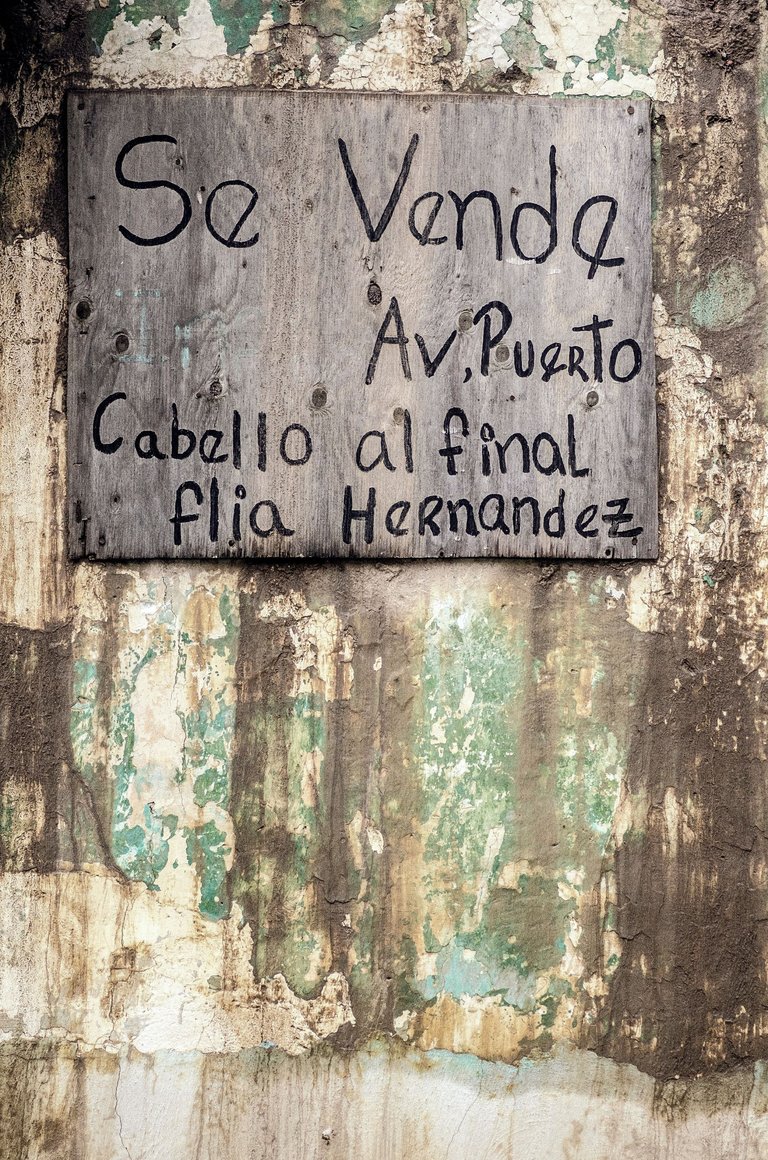 Se Vende
Av, Puerto
Cabello al final
flia Hernandez